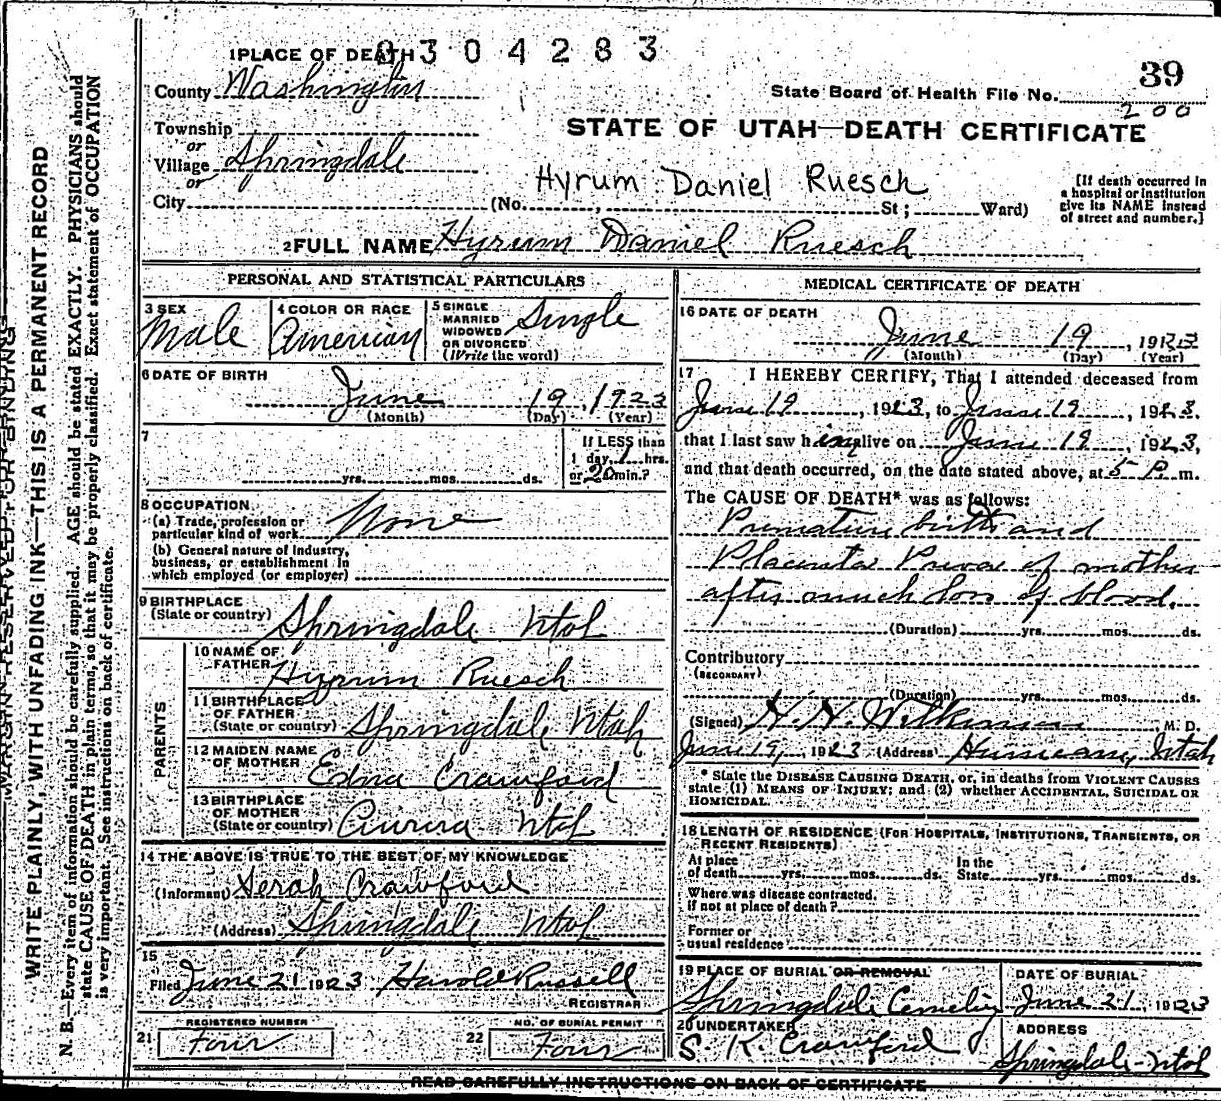 0304283
39
1 PLACE OF DEATH
County Washington
State Board of Health File No.
200
STATE OF UTAH—DEATH CERTIFICATE
Township
or
Village Springdale
or
Hyrum Daniel Ruesch
City (No. , St ; Ward)
[If death occurred in
a hospital or institution
give its NAME instead
of street and number.]
2 FULL NAME Hyrum Daniel Ruesch
PERSONAL AND STATISTICAL PARTICULARS
3 SEX
Male
4 COLOR OR RACE
American
5 SINGLE
MARRIED
WIDOWED
OR DIVORCED
(Write the word)
Single
6 DATE OF BIRTH
June 19, 1923
(Month) (Day) (Year)
7
yrs. mos. ds.
If LESS than
1 day, 1 hrs.
or 20 min.?
8 OCCUPATION
(a) Trade, profession or
particular kind of work
None
(b) General nature of industry,
business, or establishment in
which employed (or employer)
9 BIRTHPLACE
(State or country)
Springdale Utah
PARENTS
10 NAME OF
FATHER
Hyrum Ruesch
11 BIRTHPLACE
OF FATHER
(State or country)
Springdale Utah
12 MAIDEN NAME
OF MOTHER
Edna Crawford
13 BIRTHPLACE
OF MOTHER
(State or country)
Aurora Utah
14 THE ABOVE IS TRUE TO THE BEST OF MY KNOWLEDGE
(Informant) Crawford
(Address) Springdale Utah
15
Filed June 21 1923 Harold Russell
REGISTRAR
21 REGISTERED NUMBER
Four
22 NO. OF BURIAL PERMIT
Four
MEDICAL CERTIFICATE OF DEATH
16 DATE OF DEATH
June 19, 1923
(Month) (Day) (Year)
17 I HEREBY CERTIFY, That I attended deceased from
June 19, 1923, to June 19, 1923.
that I last saw him alive on June 19, 1923,
and that death occurred, on the date stated above, at 5 P. m.
The CAUSE OF DEATH* was as follows:
Premature birth and
Placenta Previa of mother
after much loss of blood.
(Duration) yrs. mos. ds.
Contributory
(SECONDARY)
(Duration) yrs. mos. ds.
(Signed) Wilkinson M. D.
June 19, 1923 (Address) Hurricane, Utah
* State the DISEASE CAUSING DEATH, or, in deaths from VIOLENT CAUSES
state (1) MEANS OF INJURY; and (2) whether ACCIDENTAL, SUICIDAL OR
HOMICIDAL.
18 LENGTH OF RESIDENCE (FOR HOSPITALS, INSTITUTIONS, TRANSIENTS, OR
RECENT RESIDENTS)
At place
of death yrs. mos. ds.
In the
State yrs. mos. ds.
Where was disease contracted.
If not at place of death?
Former or
usual residence
19 PLACE OF BURIAL OR REMOVAL
Springdale Cemetery
DATE OF BURIAL
June 21, 1923
20 UNDERTAKER
S. K. Crawford
ADDRESS
Springdale-Utah
READ CAREFULLY INSTRUCTIONS ON BACK OF CERTIFICATE
MARGIN RESERVED FOR BINDING
WRITE PLAINLY, WITH UNFADING INK—THIS IS A PERMANENT RECORD
N. B.—Every item of information should be carefully supplied. AGE should be stated EXACTLY. PHYSICIANS should
state CAUSE OF DEATH in plain terms, so that it may be properly classified. Exact statement of OCCUPATION
is very important. See instructions on back of certificate.